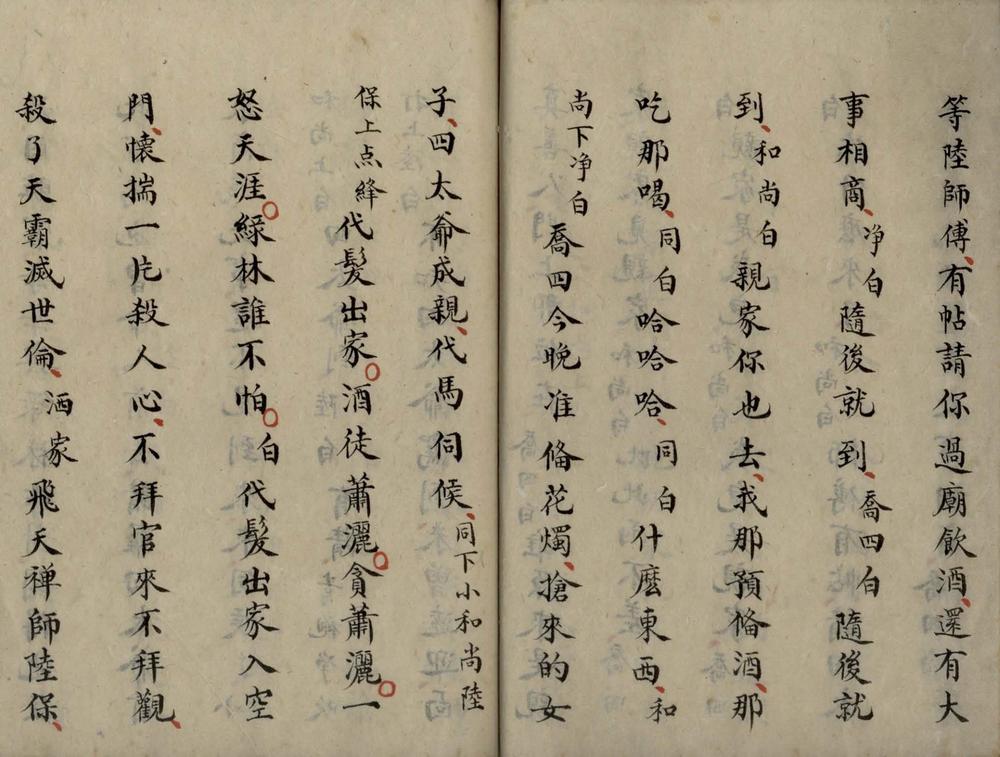 等陸師傅、有帖請你過廟飲酒、還有大
事相商、净白隨後就到、喬四白隨後就
到、和尚白親家你也去、我那預俻酒、那
吃那喝、同白哈哈哈、同白什麽東西、和
尚下净白喬四今晚准俻花燭、搶來的女
子、四太爺成親、代馬伺候、同下小和尚陸
保上点絳代髮出家。酒徒蕭灑。貪蕭灑。一
怒天涯。綠林誰不怕。白代髮出家入空
門、懷揣一片殺人心、不拜官來不拜觀、
殺了天霸滅世倫、洒家飛天禅師陸保、